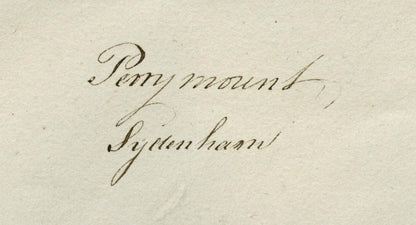 Perrymount,
Sydenham